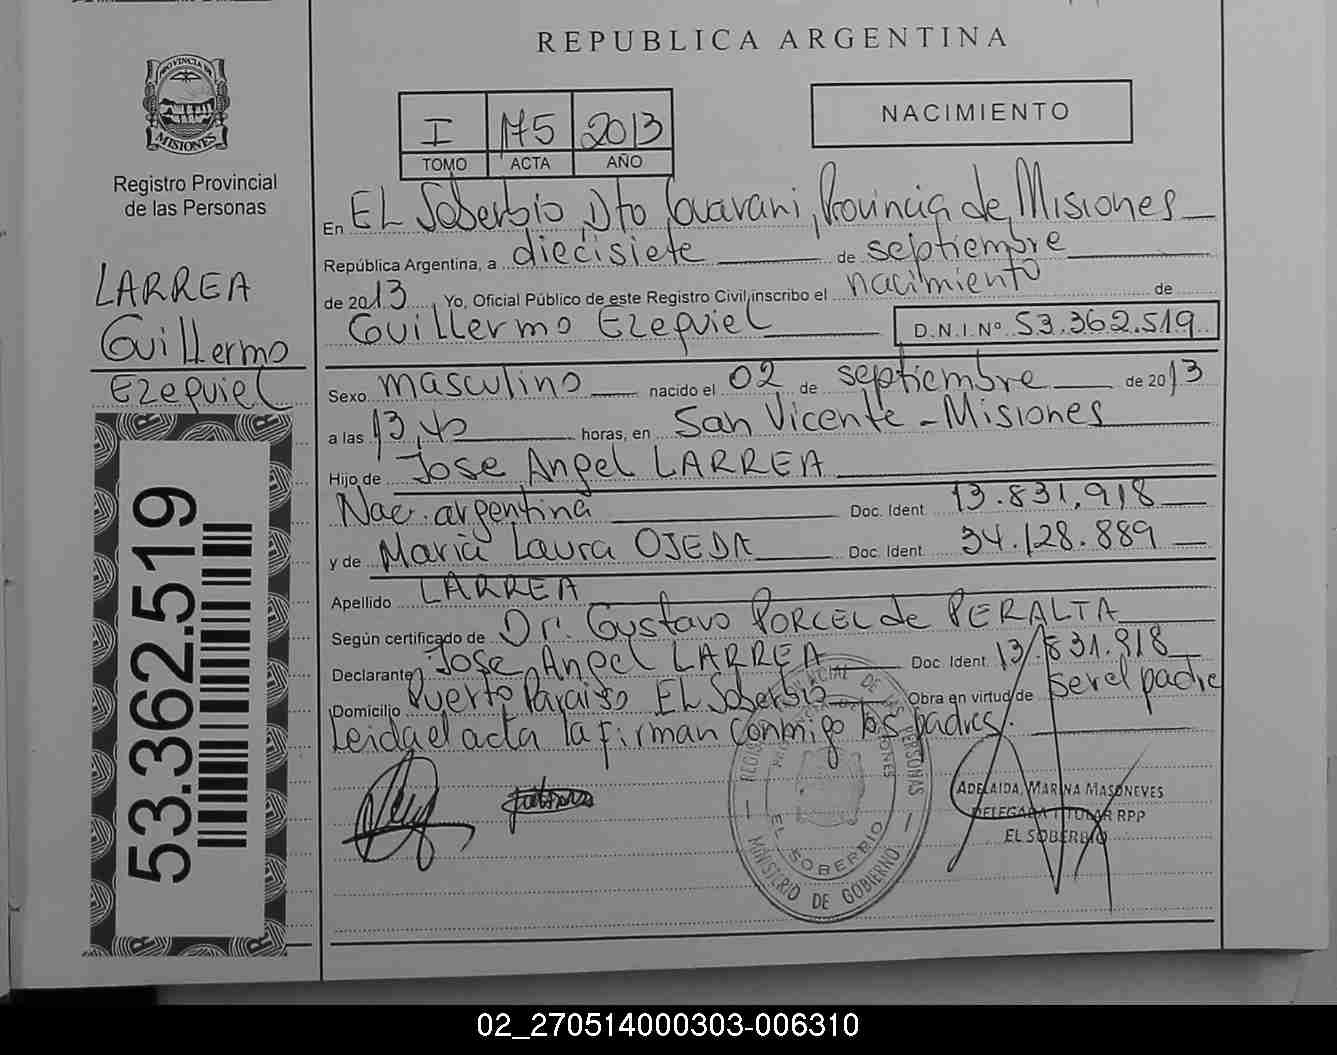 REPUBLICA ARGENTINA
PROVINCIA DE
MISIONES
Registro Provincial
de las Personas
I 175 2013
TOMO ACTA AÑO
NACIMIENTO
LARREA
Guillermo
Ezequiel
53.362.519
En EL Soberbio, Dto Guarani, Provincia de Misiones
República Argentina, a diecisiete de septiembre
de 2013, Yo, Oficial Público de este Registro Civil, inscribo el nacimiento de
Guillermo Ezequiel D.N.I.Nº 53.362.519
Sexo masculino nacido el 02 de septiembre de 2013
a las 13,40 horas, en San Vicente - Misiones
Hijo de Jose Angel LARREA
Nac. argentina Doc. Ident. 13.831.918
y de Maria Laura OJEDA Doc. Ident. 34.128.889
Apellido LARREA
Según certificado de Dr. Gustavo PORCEL de PERALTA
Declarante Jose Angel LARREA Doc. Ident. 13.831.918
Domicilio Puerto Paraiso EL Soberbio Obra en virtud de ser el padre
Leida el acta la firman conmigo los padres.
ADELAIDA MARINA MASONEVES
DELEGADA TITULAR RPP
EL SOBERBIO
EL SOBERBIO
MINISTERIO DE GOBIERNO
02_270514000303-006310